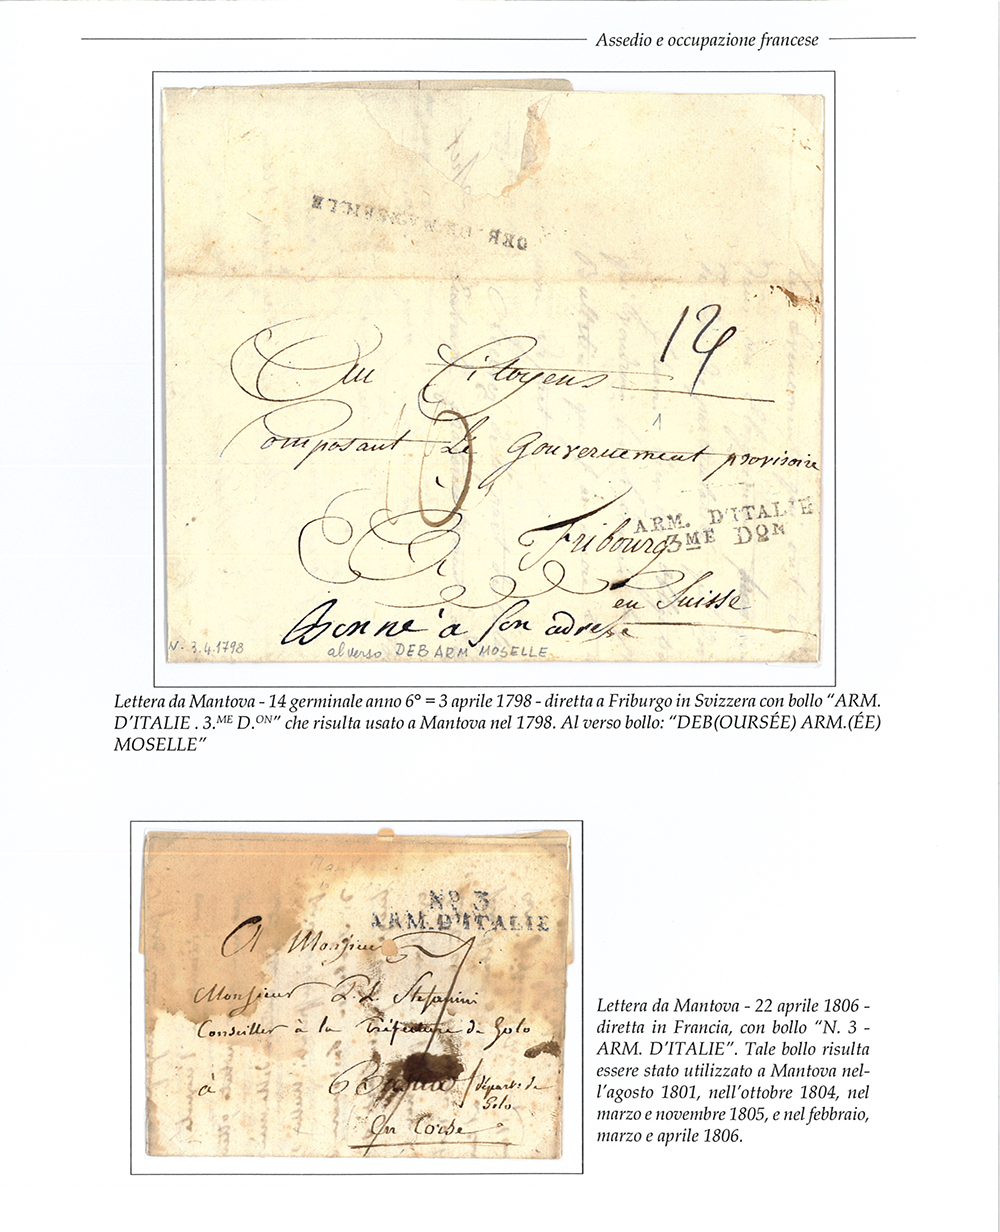 Assedio e occupazione francese
DEB
12
Aux Citoyens
Composant Le Gouvernement provisoire
ARM. D'ITALIE
3ME DON
À Fribourg
en Suisse
Donné à son adresse
N. 3.4.1798
al verso DEB ARM MOSELLE
Lettera da Mantova - 14 germinale anno 6° = 3 aprile 1798 - diretta a Friburgo in Svizzera con bollo “ARM.
D’ITALIE . 3.ME D.ON” che risulta usato a Mantova nel 1798. Al verso bollo: “DEB(OURSÉE) ARM.(ÉE)
MOSELLE”
No 3
ARM. D'ITALIE
A Monsieur
Monsieur P. L. Stefanini
Conseiller à la Préfecture de Golo
à Bastia
départt de
Golo
En Corse
Lettera da Mantova - 22 aprile 1806 -
diretta in Francia, con bollo “N. 3 -
ARM. D’ITALIE”. Tale bollo risulta
essere stato utilizzato a Mantova nel-
l’agosto 1801, nell’ottobre 1804, nel
marzo e novembre 1805, e nel febbraio,
marzo e aprile 1806.